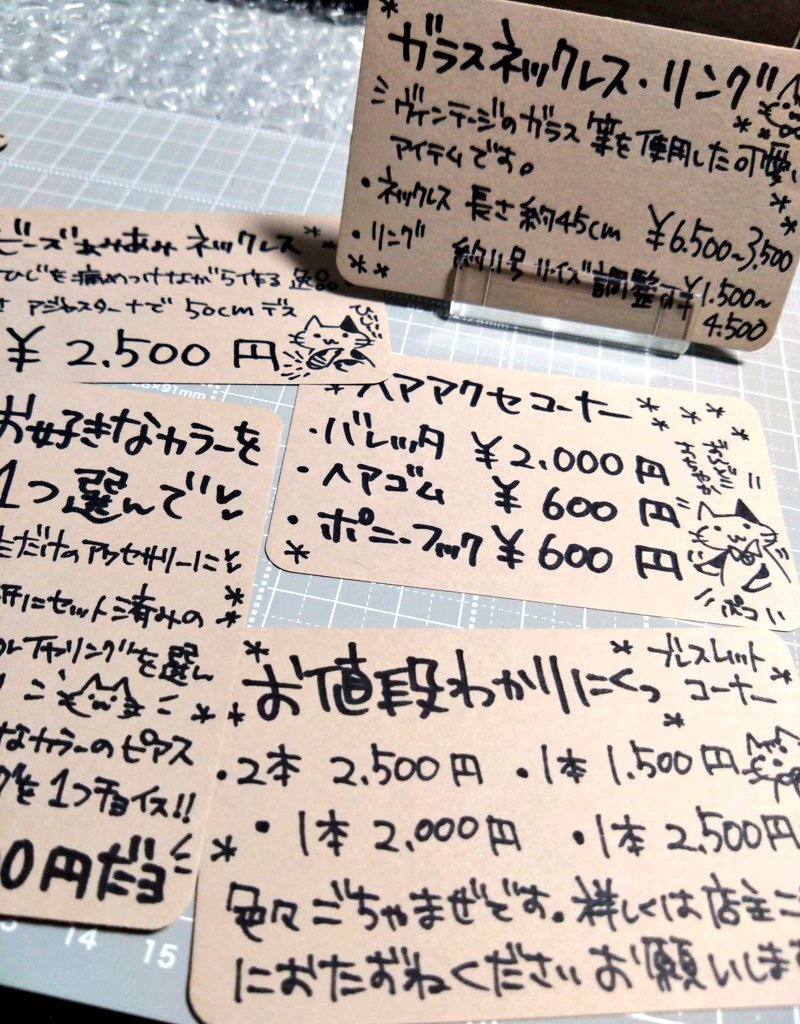 ガラスネックレス・リング
ヴィンテージのガラス 等を使用した可愛い
アイテムです。
・ネックレス 長さ約45cm ¥6.500~3.500
・リング 約11号 サイズ調整可 ¥1.500~
4.500
ビーズあみあみ ネックレス
ひじを痛めつけながら作る 逸品。
アジャスターナデ 50cm デス
¥ 2.500 円
ヘアアクセコーナー
・バレッタ ¥2.000 円
・ヘアゴム ¥ 600 円
・ポニーフック ¥ 600 円
お好きなカラーを
1つ選んで
ただけのアクセサリーに
にセット済みの
イヤリングを選ん
なカラーのピアス
を1つチョイス!!
0円だヨ
お値段わかりにくっ
ブレスレット
コーナー
・2本 2.500円 ・1本 1.500円
・1本 2.000円 ・1本 2.500円
色々ごちゃまぜです。詳しくは店主
におたずねください お願いします
15
14